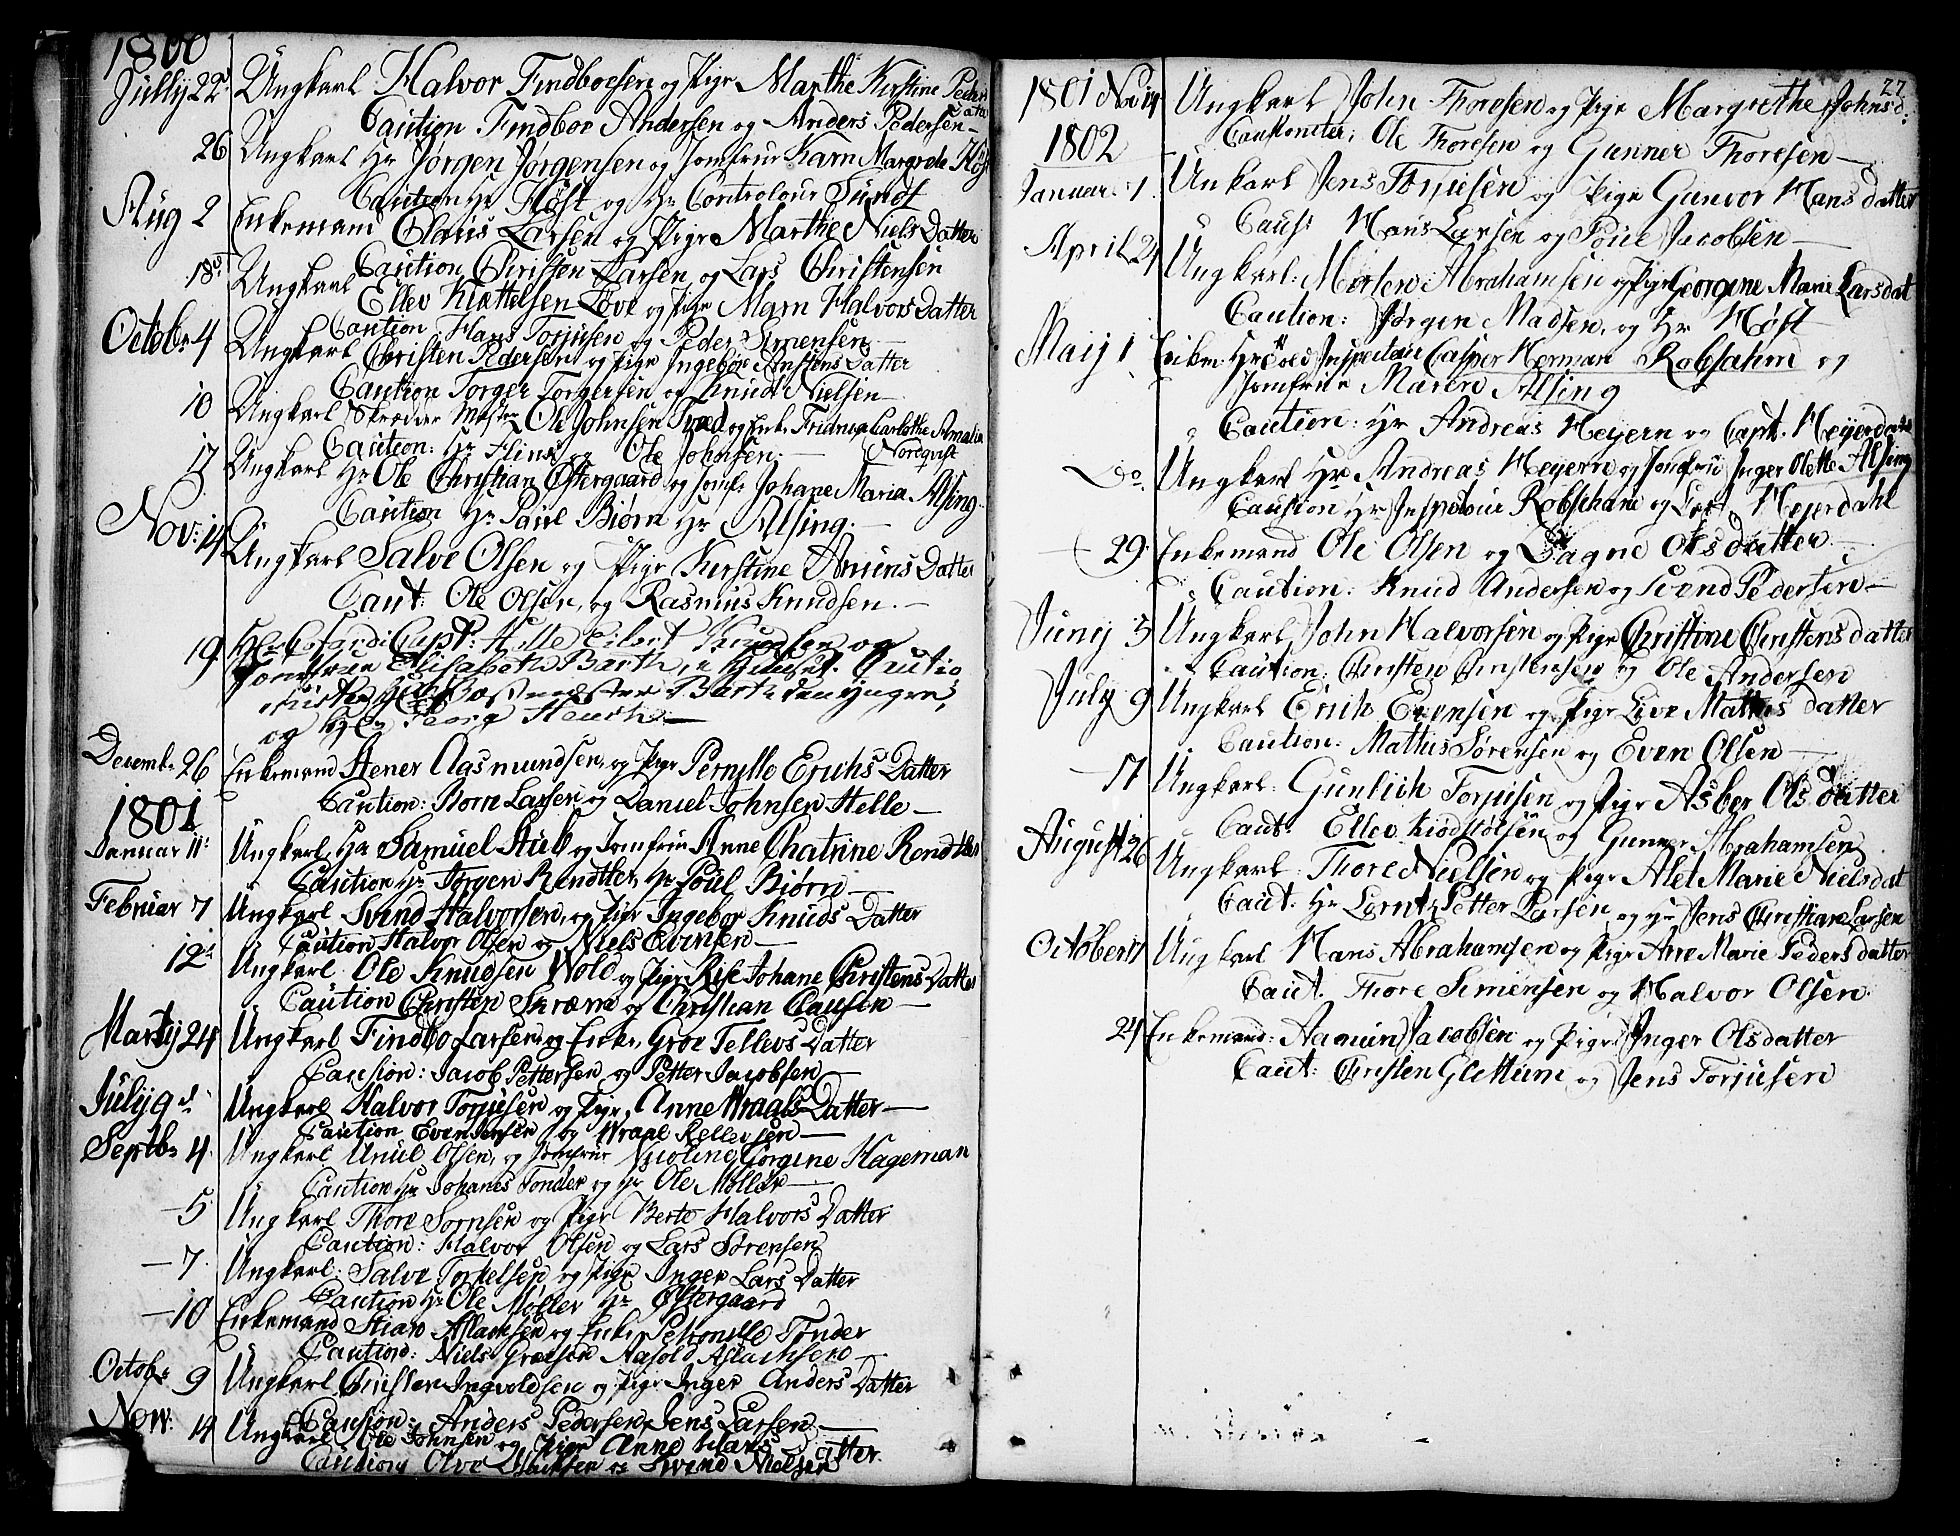 1800
Jully 22 Ungkarl Halvor Findboesen og Pige Marthe Kirstine Peders
Datter
Caution Findbor Andersen og Anders Pedersen —
26 Ungkarl Hr Jørgen Jørgensen og Jomfrue Karn Margrete Høst
Caution Hr Høst og Hr Controleur Sundt
Aug 2 Enkemand Claus Larsen og Pige Marthe Niels Datter
Caution Christen Larsen og Lars Christensen
18 Ungkarl Ellev Kiættelsen Løve og Pige Marn Halvors Datter
Caution: Hans Torjusen og Peder Simensen —
Octobr 4 Ungkarl Christen Pedersen og Pige Ingebor Anstens Datter
Caution Torger Torgersen og Knud Nielsen —
10 Ungkarl Skræder Mester Ole Johnsen Tved og Enke Fridrica Carlothe Amalia
Nordqvist
Caution: Hr Flint og Ole Johnsen. —
17 Ungkarl Hr Ole Christian Østergaard og Jomfr Johane Maria Alsing.
Caution Hr Paul Biørn Hr Alsing. —
Nov: 14 Ungkarl Salve Olsen og Pige Kirstine Aniens Datter
Caut: Ole Olsen, og Rasmus Knudsen. —
19. Capt: Hille Eilert Knudsen og
Jomfrue Elisabeth Barth, i Huuset. Cautio
nister Hr Postmester Barth den yngre,
og Hr Georg Heusch —
Decembr 26 Enkemand Stener Aasmundsen, og Pige Pernille Erichs Datter
Caution: Born Larsen og Daniel Johnsen Helle —
1801
Januar 11: Ungkarl, Hr Samuel Stub og Jomfrue Anne Chatrine Rendtler
Caution Hr Jørgen Rendtler, Hr Poul Biørn —
Februar 7 Ungkarl Svend Halvorsen, og Pige Ingebor Knuds Datter
Caution Halvor Olsen og Niels Evensen —
12 Ungkarl Ole Knudsen Wold og Pige Rise Johane Christens Datter
Caution Christen Skræm og Christian Clausen —
Martij 24 Ungkarl Findbo Larsen og Enke, Groe Tellevs Datter
Caution: Jacob Pettersen og Petter Jacobsen —
Julij 9 Ungkarl Halvor Torjusen og Pige, Anne Wraals Datter —
Caution Even Jensen og Wraal Kellevsen —
Septbr 4. Ungkarl Unul Olsen, og Jomfrue Nicoline Gorgine Hageman
Caution Hr Johanes Tonder og Hr Ole Møller —
— 5 Ungkarl Thore Sornsen og Pige Berte Halvors Datter
Caution: Halvor Olsen og Lars Sørensen
— 7. Ungkarl: Salve Torkelsen og Pige Inger Lars Datter
Caution Hr Ole Møller Hr Østergaard
— 10 Enkemand Stian Aslachsen og Enke Petronille Tønder
Caution: Niels Græsen Aasold Aslachsen —
Octobr 9 Ungkarl Christen Ingvoldsen og Pige Inger Anders Datter
Caution: Anders Pedersen, Jens Larsen —
Now: 14 Ungkarl Ole Johnsen og Pige Anne Hans Datter.
Caution Olve og Svend Nielsen
27.
1801 Nov 14 Ungkarl John Thoresen og Pige Margrethe Johnsd:
Cautionister; Ole Thoresen og Gunner Thoresen —
1802
Januar 1. Unkarl Jens Torjusen og Pige Gunvor Hans datter
Caust Hans Larsen og Poul Jacobsen —
April 24 Ungkarl: Morten Abrahamsen og Pige Georgine Marie Larsdat
Caution: Jørgen Madsen, og Hr Høst —
Maij 1 Enkm: Hr Inspecteur Casper Herman Robsahm og
Jomfrue Maren Alsing
Caution: Hr Andreas Heyern og Capt. Meyerdahl
— Do. Ungkarl Hr Andreas Heyern og Jomfrue Inger Olette Alsing
Caution Hr Inspecteur Robscham og Capt Meyerdahl
— 29. Enkemand Ole Olsen og Dagne Olsdatter —
Caution: Knud Andersen og Svend Pedersen —
Junij 3 Ungkarl John Halvorsen og Pige Christine Christens datter
Caution: Christen Christensen og Ole Andersen
July 9 Ungkarl Erich Evensen og Pige Live Mathis datter
Caution: Mathis Sørensen og Even Olsen —
— 17 Ungkarl: Gunlich Torjusen og Pige Asber Ols datter
Caut: Ellev Kiødstolsen og Gunner Abrahamsen
August 26 Ungkarl: Thore Nielsen og Pige Alet Marie Nielsdat
Caut: Hr Lorntz Petter Larsen og Hr Jens Christian Larsen
October 17 Ungkarl Hans Abrahamsen og Pige Ane Marie Peders datter
Caut. Thore Simensen og Halvor Olsen.
24 Enkemand: Aamun Jacobsen og Pige Inger Olsdatter
Caut: Christen Glettum og Jens Torjusen